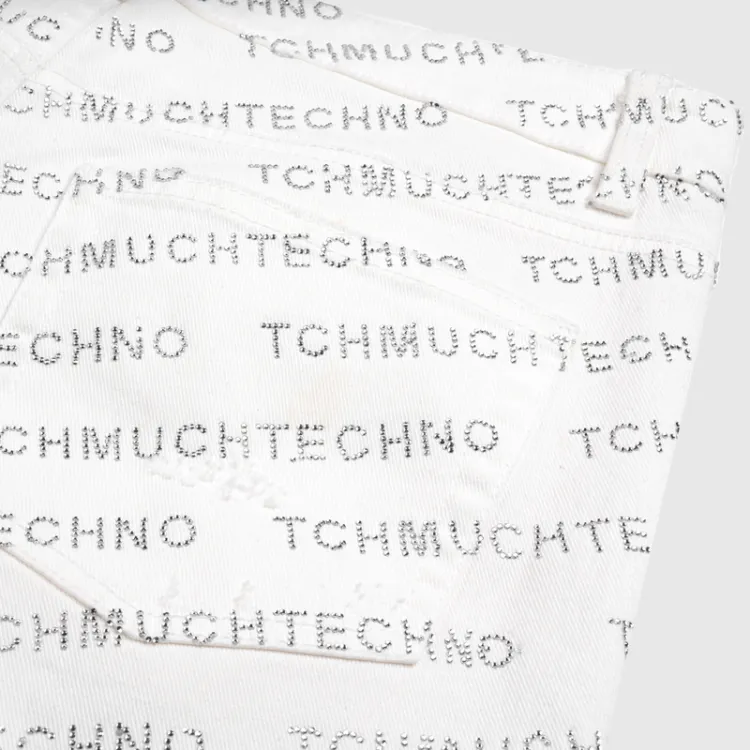 CHNO
C NO TCHMUCHT
CHMUCHTECHNO TCHMUC
ECHNO TCHMUCHTECHNO
CHMUCHTECHNO TCHMU
ECHNO TCHMUCHTECH
CHMUCHTECHNO TCH
ECHNO TCHMUCHTE
CHMUCHTECHNO T
ECHNO TCHMUCH